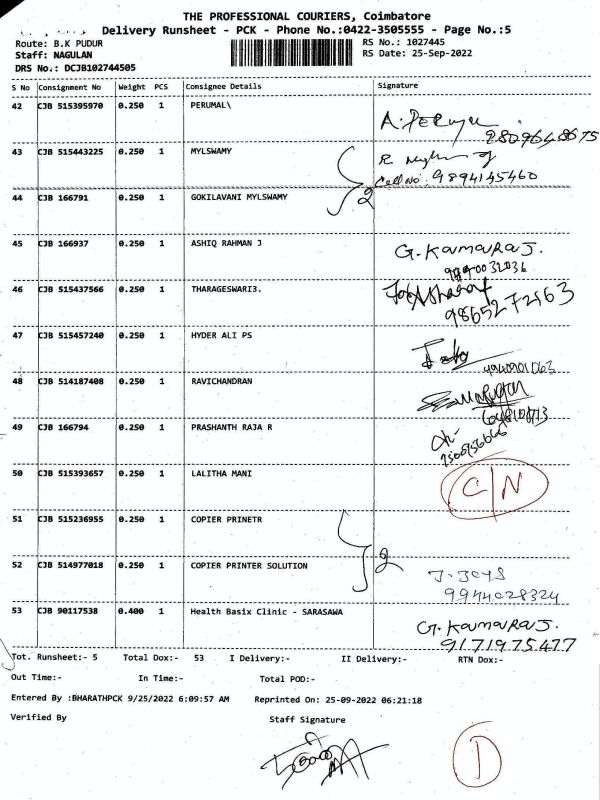 THE PROFESSIONAL COURIERS, Coimbatore
Delivery Runsheet - PCK - Phone No.:0422-3505555 - Page No.:5
Route: B.K PUDUR
RS No.: 1027445
Staff: NAGULAN
RS Date: 25-Sep-2022
DRS No.: DCJB102744505
S No Consignment No Weight PCS Consignee Details Signature
42 CJB 515395970 0.250 1 PERUMAL\
43 CJB 515443225 0.250 1 MYLSWAMY
Cell No: 9894145460
44 CJB 166791 0.250 1 GOKILAVANI MYLSWAMY
2
45 CJB 166937 0.250 1 ASHIQ RAHMAN J
G. Kamaraj.
46 CJB 515437566 0.250 1 THARAGESWARI3.
47 CJB 515457240 0.250 1 HYDER ALI PS
48 CJB 514187408 0.250 1 RAVICHANDRAN
49 CJB 166794 0.250 1 PRASHANTH RAJA R
50 CJB 515393657 0.250 1 LALITHA MANI
C/N
51 CJB 515236955 0.250 1 COPIER PRINETR
52 CJB 514977018 0.250 1 COPIER PRINTER SOLUTION
2
9944028324
53 CJB 90117538 0.400 1 Health Basix Clinic - SARASAWA
G. Kamaraj.
9171975477
Tot. Runsheet:- 5 Total Dox:- 53 I Delivery:- II Delivery:- RTN Dox:-
Out Time:- In Time:- Total POD:-
Entered By :BHARATHPCK 9/25/2022 6:09:57 AM Reprinted On: 25-09-2022 06:21:18
Verified By Staff Signature